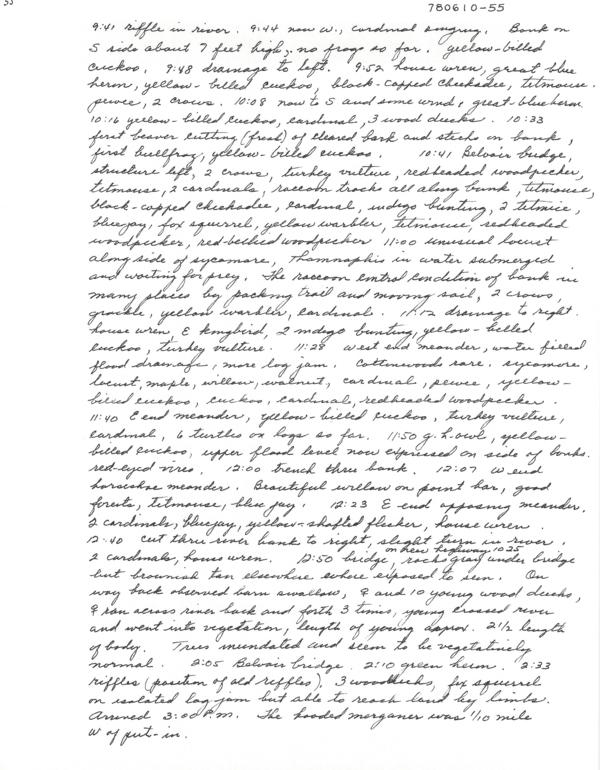 55
780610-55
9:41 riffle in river. 9:44 now W., cardinal singing. Bank on
S side about 7 feet high, no frogs so far. yellow-billed
cuckoo. 9:48 drainage to left. 9:52 house wren, great blue
heron, yellow-billed cuckoo, black-capped chickadee, titmouse.
pewee, 2 crows. 10:08 now to S and some wind, great blue heron
10:16 yellow-billed cuckoo, cardinal, 3 wood ducks. 10:33
first beaver cutting (fresh) of cleared bark and sticks on bank,
first bullfrog, yellow-billed cuckoo. 10:41 Belvoir bridge,
structure left, 2 crows, turkey vulture, redheaded woodpecker,
titmouse, 2 cardinals, raccoon tracks all along bank, titmouse,
black-capped chickadee, cardinal, indigo bunting, 2 titmice,
bluejay, fox squirrel, yellow warbler, titmouse, redheaded
woodpecker, red-bellied woodpecker 11:00 unusual locust
along side of sycamore, Thamnophis in water submerged
and waiting for prey. The raccoon control condition of bank in
many places by packing trail and moving soil, 2 crows,
grackle, yellow warbler, cardinal. 11:12 drainage to right.
house wren, E kingbird, 2 indigo bunting, yellow-billed
cuckoo, turkey vulture. 11:28 West end meander, water filled
flood drainage, more log jam. Cottonwoods rare. sycamore,
locust, maple, willow, walnut, cardinal, pewee, yellow-
billed cuckoo, cuckoo, cardinal, redheaded woodpecker.
11:40 E end meander, yellow-billed cuckoo, turkey vulture,
cardinal, 6 turtles on logs so far. 11:50 g.h. owl, yellow-
billed cuckoo, upper flood level now expressed on side of banks.
red-eyed vireo. 12:00 trench thru bank. 12:07 W end
horseshoe meander. Beautiful willow on point bar, good
forests, titmouse, blue jay. 12:23 E end opposing meander.
2 cardinals, bluejay, yellow-shafted flicker, house wren.
12:40 cut thru river bank to right, slight turn in river.
2 cardinals, house wren. 12:50 bridge, on new highway 1025 rocks gray under bridge
but brownish tan elsewhere where exposed to sun. On
way back observed barn swallow, ♀ and 10 young wood ducks,
♀ ran across river back and forth 3 times, young crossed river
and went into vegetation, length of young approx. 2 1/2 length
of body. Trees inundated and seem to be vegetatively
normal. 2:05 Belvoir bridge. 2:10 green heron. 2:33
riffles (position of old riffles), 3 woodducks, fox squirrel
on isolated log jam but able to reach land by limbs.
Arrived 3:00 P.M. The hooded merganser was 1/10 mile
W of put-in.